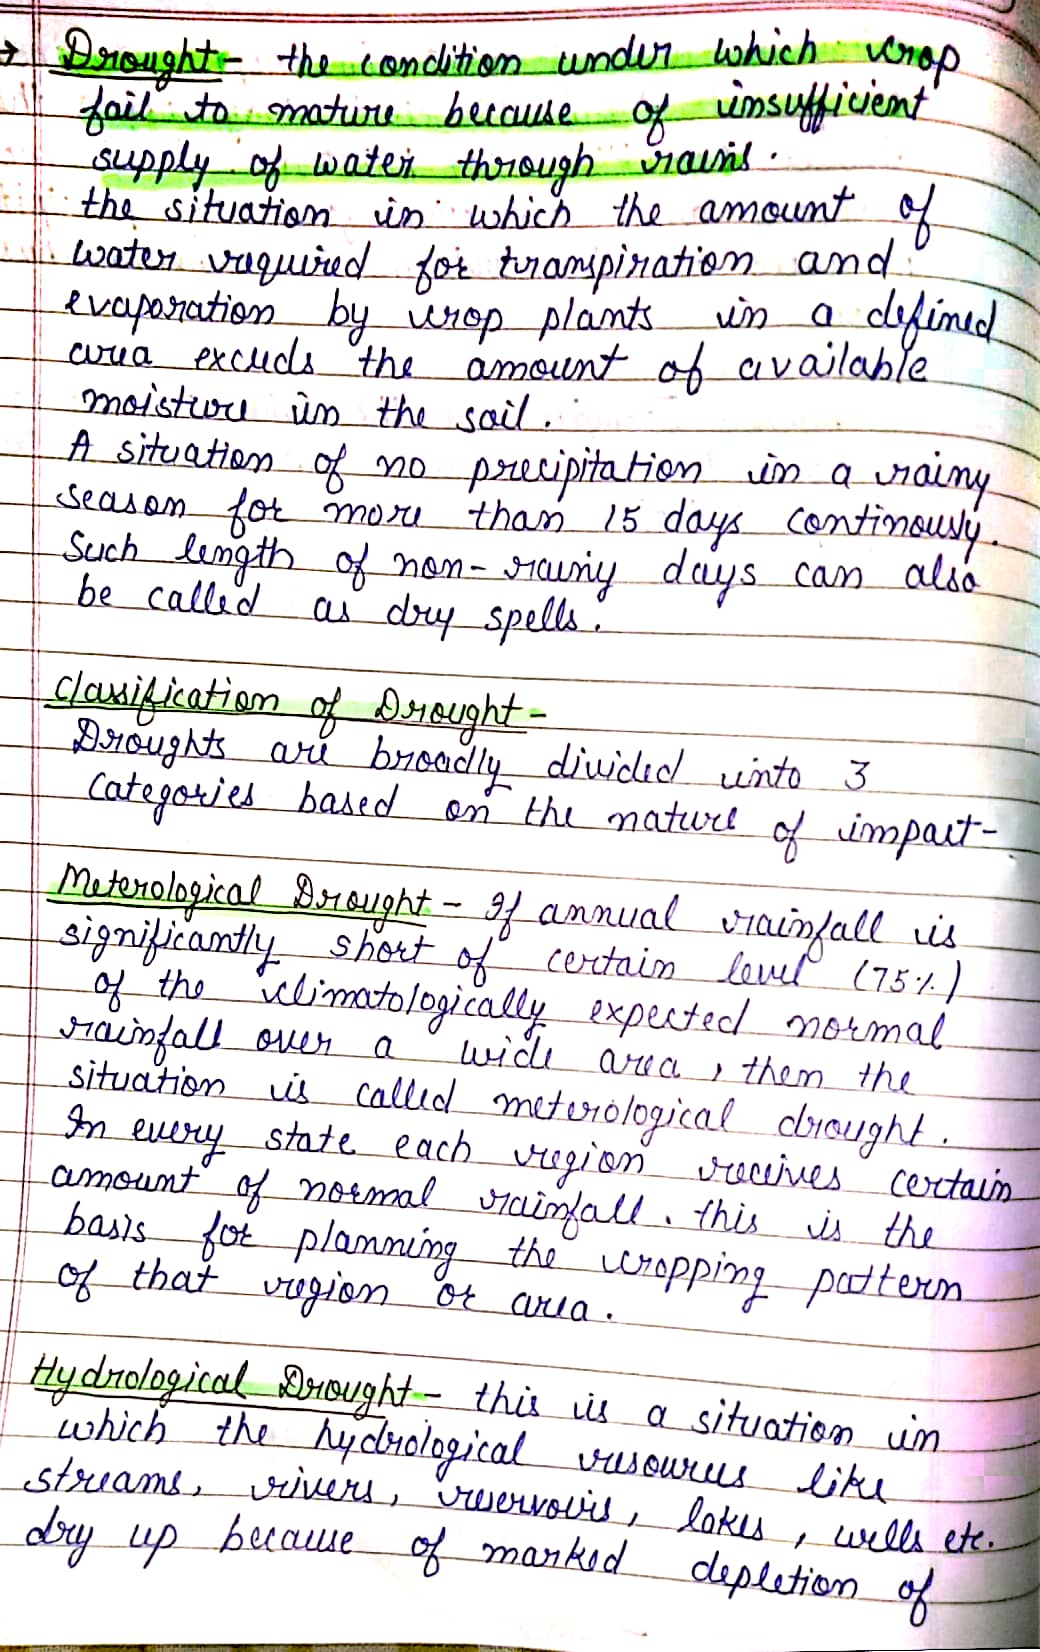 → Drought - the condition under which crop
fail to mature because of insufficient
supply of water through rains.
the situation in which the amount of
water required for transpiration and
evaporation by crop plants in a defined
area exceeds the amount of available
moisture in the soil.
A situation of no precipitation in a rainy
season for more than 15 days continously.
Such length of non-rainy days can also
be called as dry spells.
Classification of Drought -
Droughts are broadly divided into 3
Categories based on the nature of impact-
Meterological Drought - If annual rainfall is
significantly short of certain level (75%)
of the climatologically expected normal
rainfall over a wide area, then the
situation is called meterological drought.
In every state each region receives certain
amount of normal rainfall. this is the
basis for planning the cropping pattern
of that region or area.
Hydrological Drought - this is a situation in
which the hydrological resources like
streams, rivers, reservoirs, lakes, wells etc.
dry up because of marked depletion of